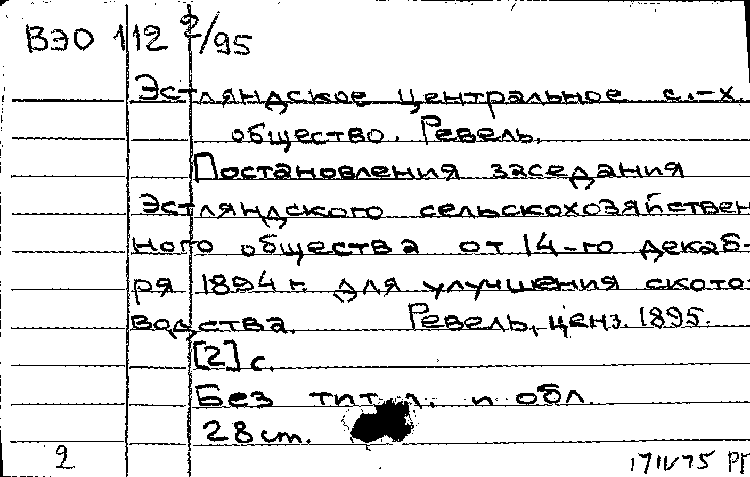 ВЭО 112 2/95
Эстляндское центральное с.-х.
общество. Ревель.
Постановления заседания
Эстляндского сельскохозяйствен
ного общества от 14-го декаб-
ря 1894 г. для улучшения ското-
водства. Ревель, ценз. 1895.
[2] с.
Без тит. л. и обл.
28 cm.
2
17IV75 РГ